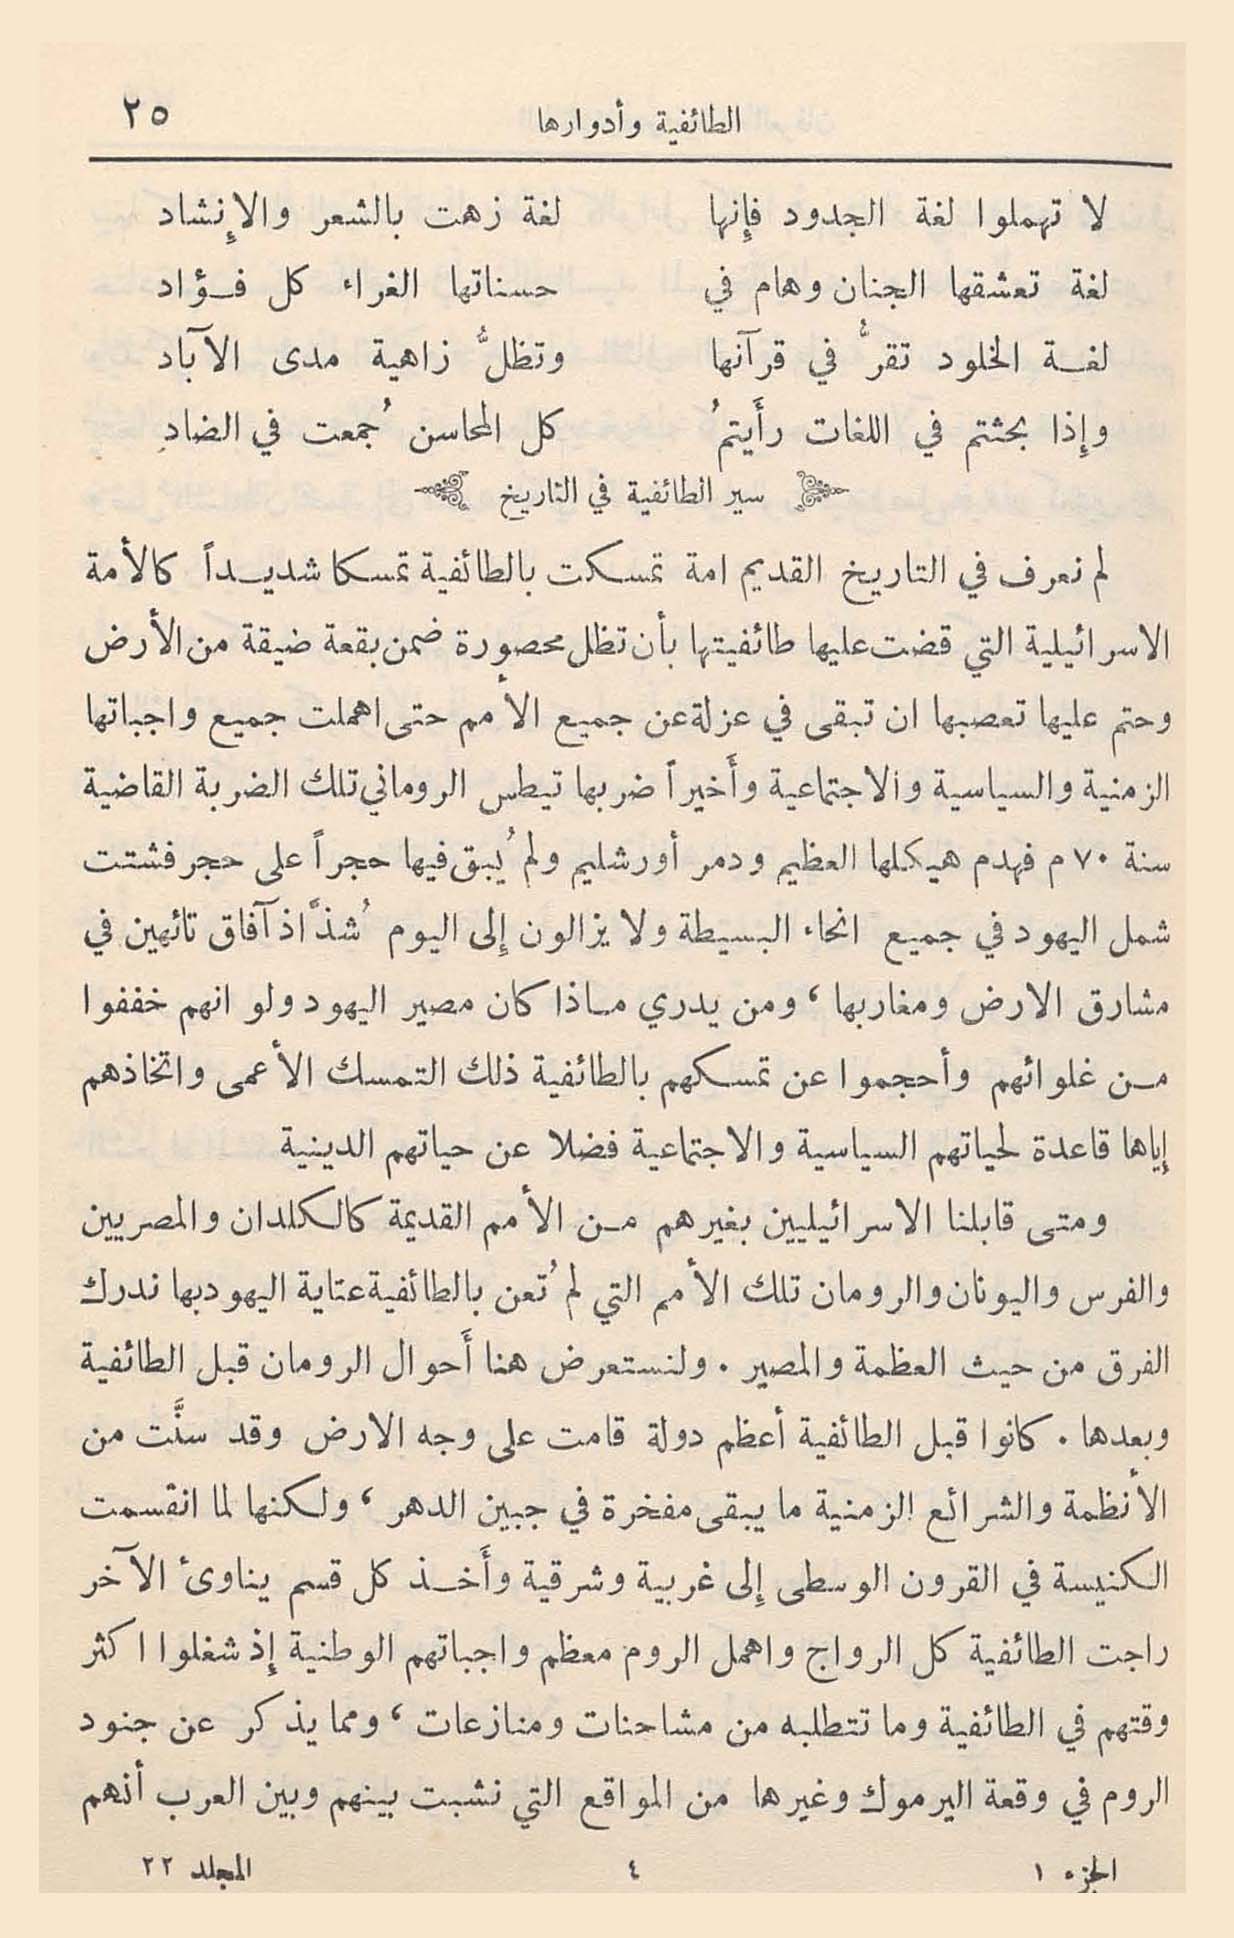 الطائفية وأدوارها ٢٥
لا تهملوا لغة الجدود فإنها لغة زهت بالشعر والإنشاد
لغة تعشقها الجنان وهام في حسناتها الغراء كل فؤاد
لغة الخلود تقرُّ في قرآنها وتظلُّ زاهية مدى الآباد
وإذا بحثتم في اللغات رأَيتمُ كل المحاسن جُمعت في الضاد
سير الطائفية في التاريخ
لم نعرف في التاريخ القديم امة تمسكت بالطائفية تمسكا شديداً كالأمة
الاسرائيلية التي قضت عليها طائفيتها بأن تظل محصورة ضمن بقعة ضيقة من الأرض
وحتم عليها تعصبها ان تبقى في عزلة عن جميع الأمم حتى اهملت جميع واجباتها
الزمنية والسياسية والاجتماعية وأَخيراً ضربها تيطس الروماني تلك الضربة القاضية
سنة ٧٠ م فهدم هيكلها العظيم ودمر أورشليم ولم يُبق فيها حجراً على حجر فشتت
شمل اليهود في جميع انحاء البسيطة ولا يزالون إلى اليوم شُذَّاذ آفاق تائهين في
مشارق الارض ومغاربها ، ومن يدري ماذا كان مصير اليهود ولو انهم خففوا
من غلوائهم وأحجموا عن تمسكهم بالطائفية ذلك التمسك الأعمى واتخاذهم
إياها قاعدة لحياتهم السياسية والاجتماعية فضلا عن حياتهم الدينية
ومتى قابلنا الاسرائيليين بغيرهم من الأمم القديمة كالكلدان والمصريين
والفرس واليونان والرومان تلك الأمم التي لم تُعن بالطائفية عناية اليهود بها ندرك
الفرق من حيث العظمة والمصير . ولنستعرض هنا أَحوال الرومان قبل الطائفية
وبعدها . كانوا قبل الطائفية أعظم دولة قامت على وجه الارض وقد سنَّت من
الأنظمة والشرائع الزمنية ما يبقى مفخرة في جبين الدهر ، ولكنها لما انقسمت
الكنيسة في القرون الوسطى إلى غربية وشرقية وأَخذ كل قسم يناوئ الآخر
راجت الطائفية كل الرواج واهمل الروم معظم واجباتهم الوطنية إذ شغلوا اكثر
وقتهم في الطائفية وما تتطلبه من مشاحنات ومنازعات ، ومما يذكر عن جنود
الروم في وقعة اليرموك وغيرها من المواقع التي نشبت بينهم وبين العرب أنهم
الجزء ١ ٤ المجلد ٢٢